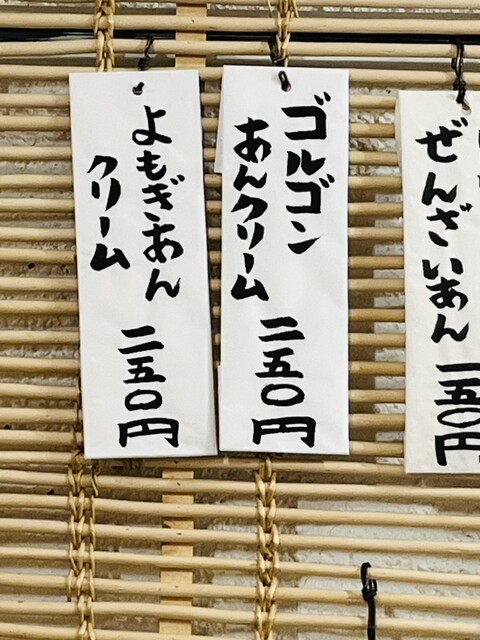 ぜんざいあん
一五〇円
ゴルゴン
あんクリーム
二五〇円
よもぎあん
クリーム
二五〇円